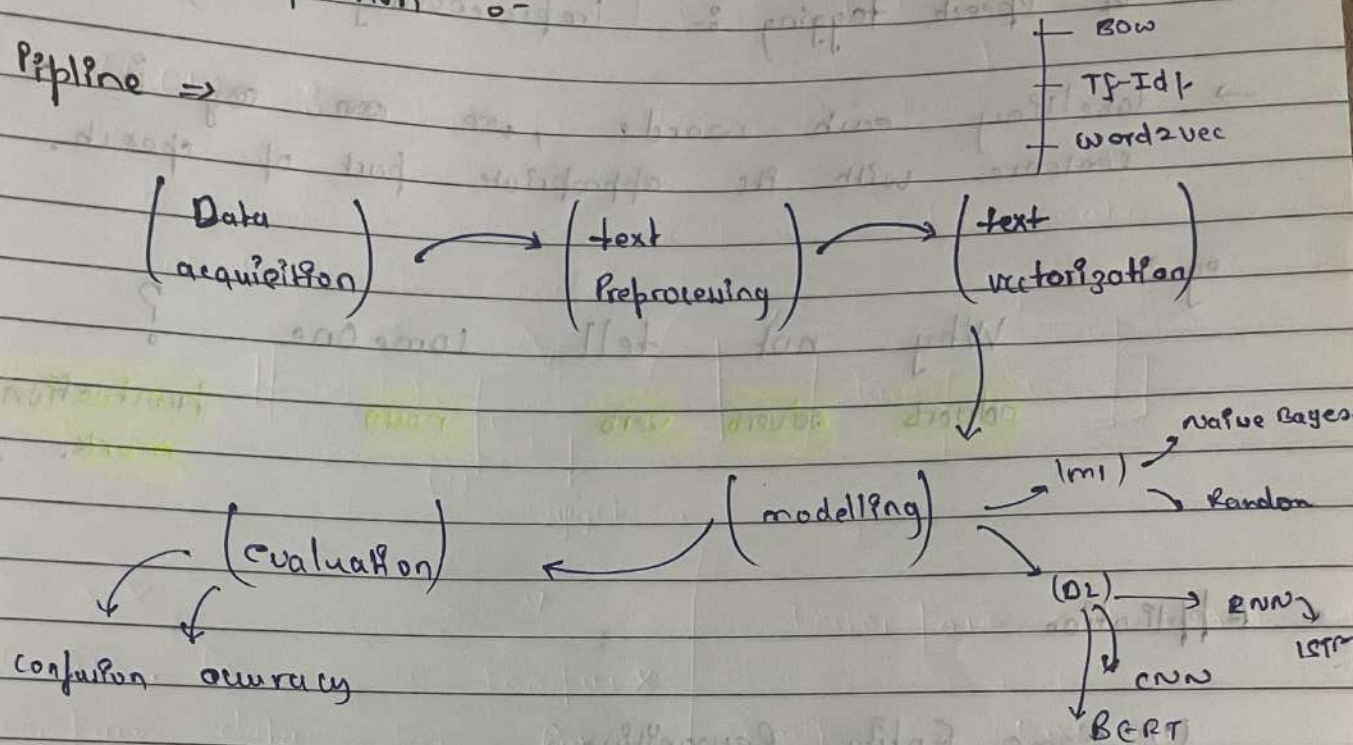 BOW
Tf-Idf
word2vec
Pipline ⇒
Data
acquisition
text
Preprocessing
text
vectorization
modelling
(ml)
Naive Bayes
Random
(DL)
RNN
LSTM
CNN
BERT
evaluation
Confusion accuracy